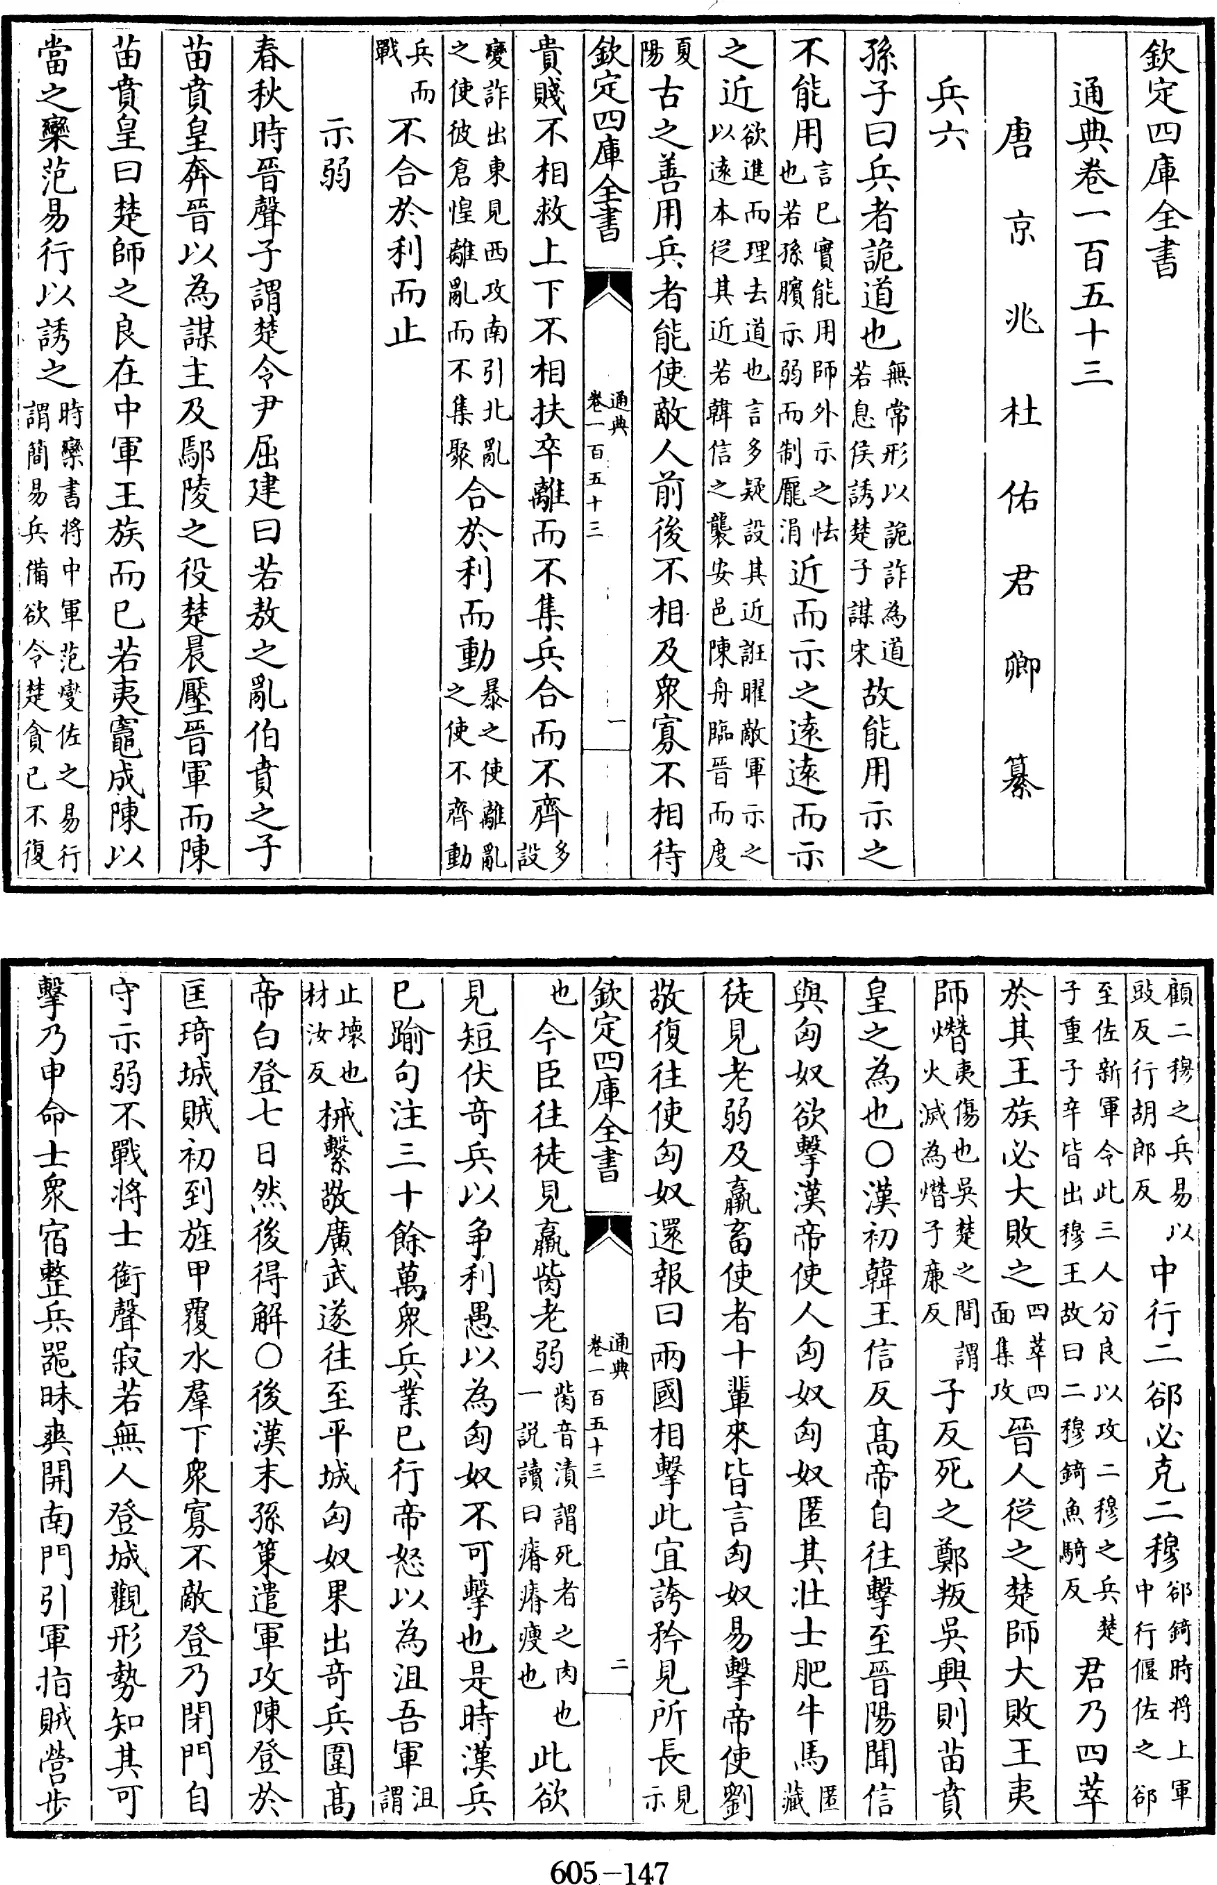 欽定四庫全書
通典卷一百五十三
唐京兆杜佑君卿纂
兵六
孫子曰兵者詭道也無常形以詭詐為道若息侯誘楚子謀宋故能用示之
不能用言已實能用師外示之怯也若孫臏示弱而制龐涓近而示之遠遠而示
之近欲進而理去道也言多疑設其近誑曜敵軍示之以遠本從其近若韓信之襲安邑陳舟臨晉而度
夏陽古之善用兵者能使敵人前後不相及衆寡不相待
欽定四庫全書
通典
卷一百五十三
一
貴賤不相救上下不相扶卒離而不集兵合而不齊多設
變詐出東見西攻南引北亂之使彼倉惶離亂而不集聚合於利而動暴之使離亂之使不齊動
兵而戰不合於利而止
示弱
春秋時晉聲子謂楚令尹屈建曰若敖之亂伯賁之子
苗賁皇奔晉以為謀主及鄢陵之役楚晨壓晉軍而陳
苗賁皇曰楚師之良在中軍王族而已若夷竈成陳以
當之欒范易行以誘之時欒書將中軍范燮佐之易行謂簡易兵備欲令楚貪已不復
顧二穆之兵易以豉反行胡郎反中行二郤必克二穆郤錡時將上軍中行偃佐之郤
至佐新軍令此三人分良以攻二穆之兵楚子重子辛皆出穆王故曰二穆錡魚騎反君乃四萃
於其王族必大敗之四萃四面集攻晉人從之楚師大敗王夷
師熸夷傷也吳楚之間謂火滅為熸子廉反子反死之鄭叛吳興則苗賁
皇之為也○漢初韓王信反高帝自往擊至晉陽聞信
與匈奴欲擊漢帝使人匈奴匈奴匿其壯士肥牛馬匿藏
徒見老弱及羸畜使者十輩來皆言匈奴易擊帝使劉
敬復往使匈奴還報曰兩國相擊此宜誇矜見所長見示
欽定四庫全書
通典
卷一百五十三
二
也今臣往徒見羸胔老弱胔音漬謂死者之肉也一說讀曰瘠瘠瘦也此欲
見短伏奇兵以爭利愚以為匈奴不可擊也是時漢兵
已踰句注三十餘萬衆兵業已行帝怒以為沮吾軍沮謂
止壞也材汝反械繫敬廣武遂往至平城匈奴果出奇兵圍高
帝白登七日然後得解○後漢末孫策遣軍攻陳登於
匡琦城賊初到旌甲覆水羣下衆寡不敵登乃閉門自
守示弱不戰將士銜聲寂若無人登城觀形勢知其可
擊乃申命士衆宿整兵器昧爽開南門引軍指賊營步
605-147